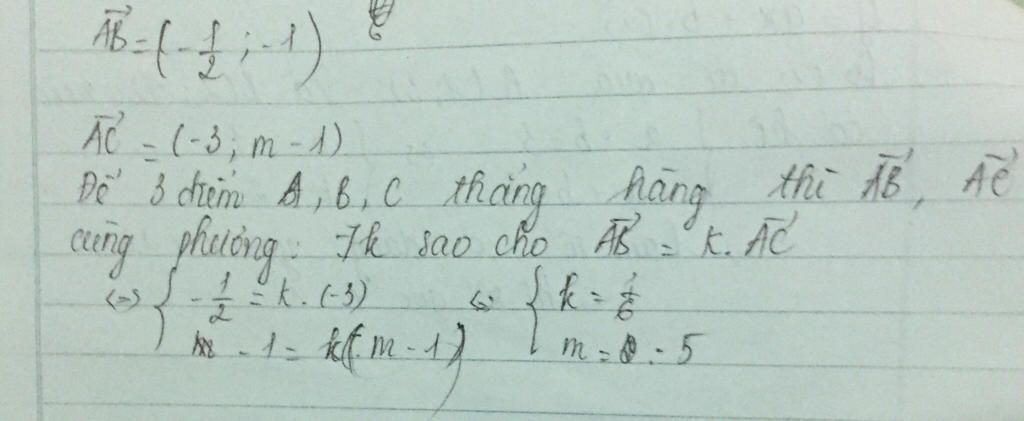 AB = (-1/2 ; -1)
AC = (-3 ; m - 1)
Để 3 điểm A, B, C thẳng hàng thì AB, AC
cùng phương: ∃k sao cho AB = k. AC
<=> { -1/2 = k. (-3) <=> { k = 1/6
-1 = k(m - 1) m = -5